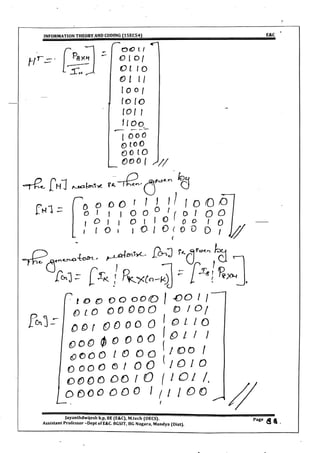 INFORMATION THEORY AND CODING (15EC54) E&C
Hᵀ = [P8×4 / I] =
0011
0101
0110
0111
1001
1010
1011
1100
1000
0100
0010
0001 //
The [H] matrix is then given by
[H] =
0 0 0 0 1 1 1 1 | 1 0 0 0
0 1 1 1 0 0 0 1 | 0 1 0 0
1 0 1 1 0 1 1 0 | 0 0 1 0
1 1 0 1 1 0 1 0 | 0 0 0 1
The generator matrix [G] is given by
[G] = [I_K | P_K×(n-k)] = [I_8 | P_8×4]
[G] =
1 0 0 0 0 0 0 0 | 0 0 1 1
0 1 0 0 0 0 0 0 | 0 1 0 1
0 0 1 0 0 0 0 0 | 0 1 1 0
0 0 0 1 0 0 0 0 | 0 1 1 1
0 0 0 0 1 0 0 0 | 1 0 0 1
0 0 0 0 0 1 0 0 | 1 0 1 0
0 0 0 0 0 0 1 0 | 1 0 1 1
0 0 0 0 0 0 0 1 | 1 1 0 0
Jayanthdwijesh h.p. BE (E&C), M.tech (DECS).
Assistant Professor –Dept of E&C. BGSIT, BG Nagara, Mandya (Dist).
Page